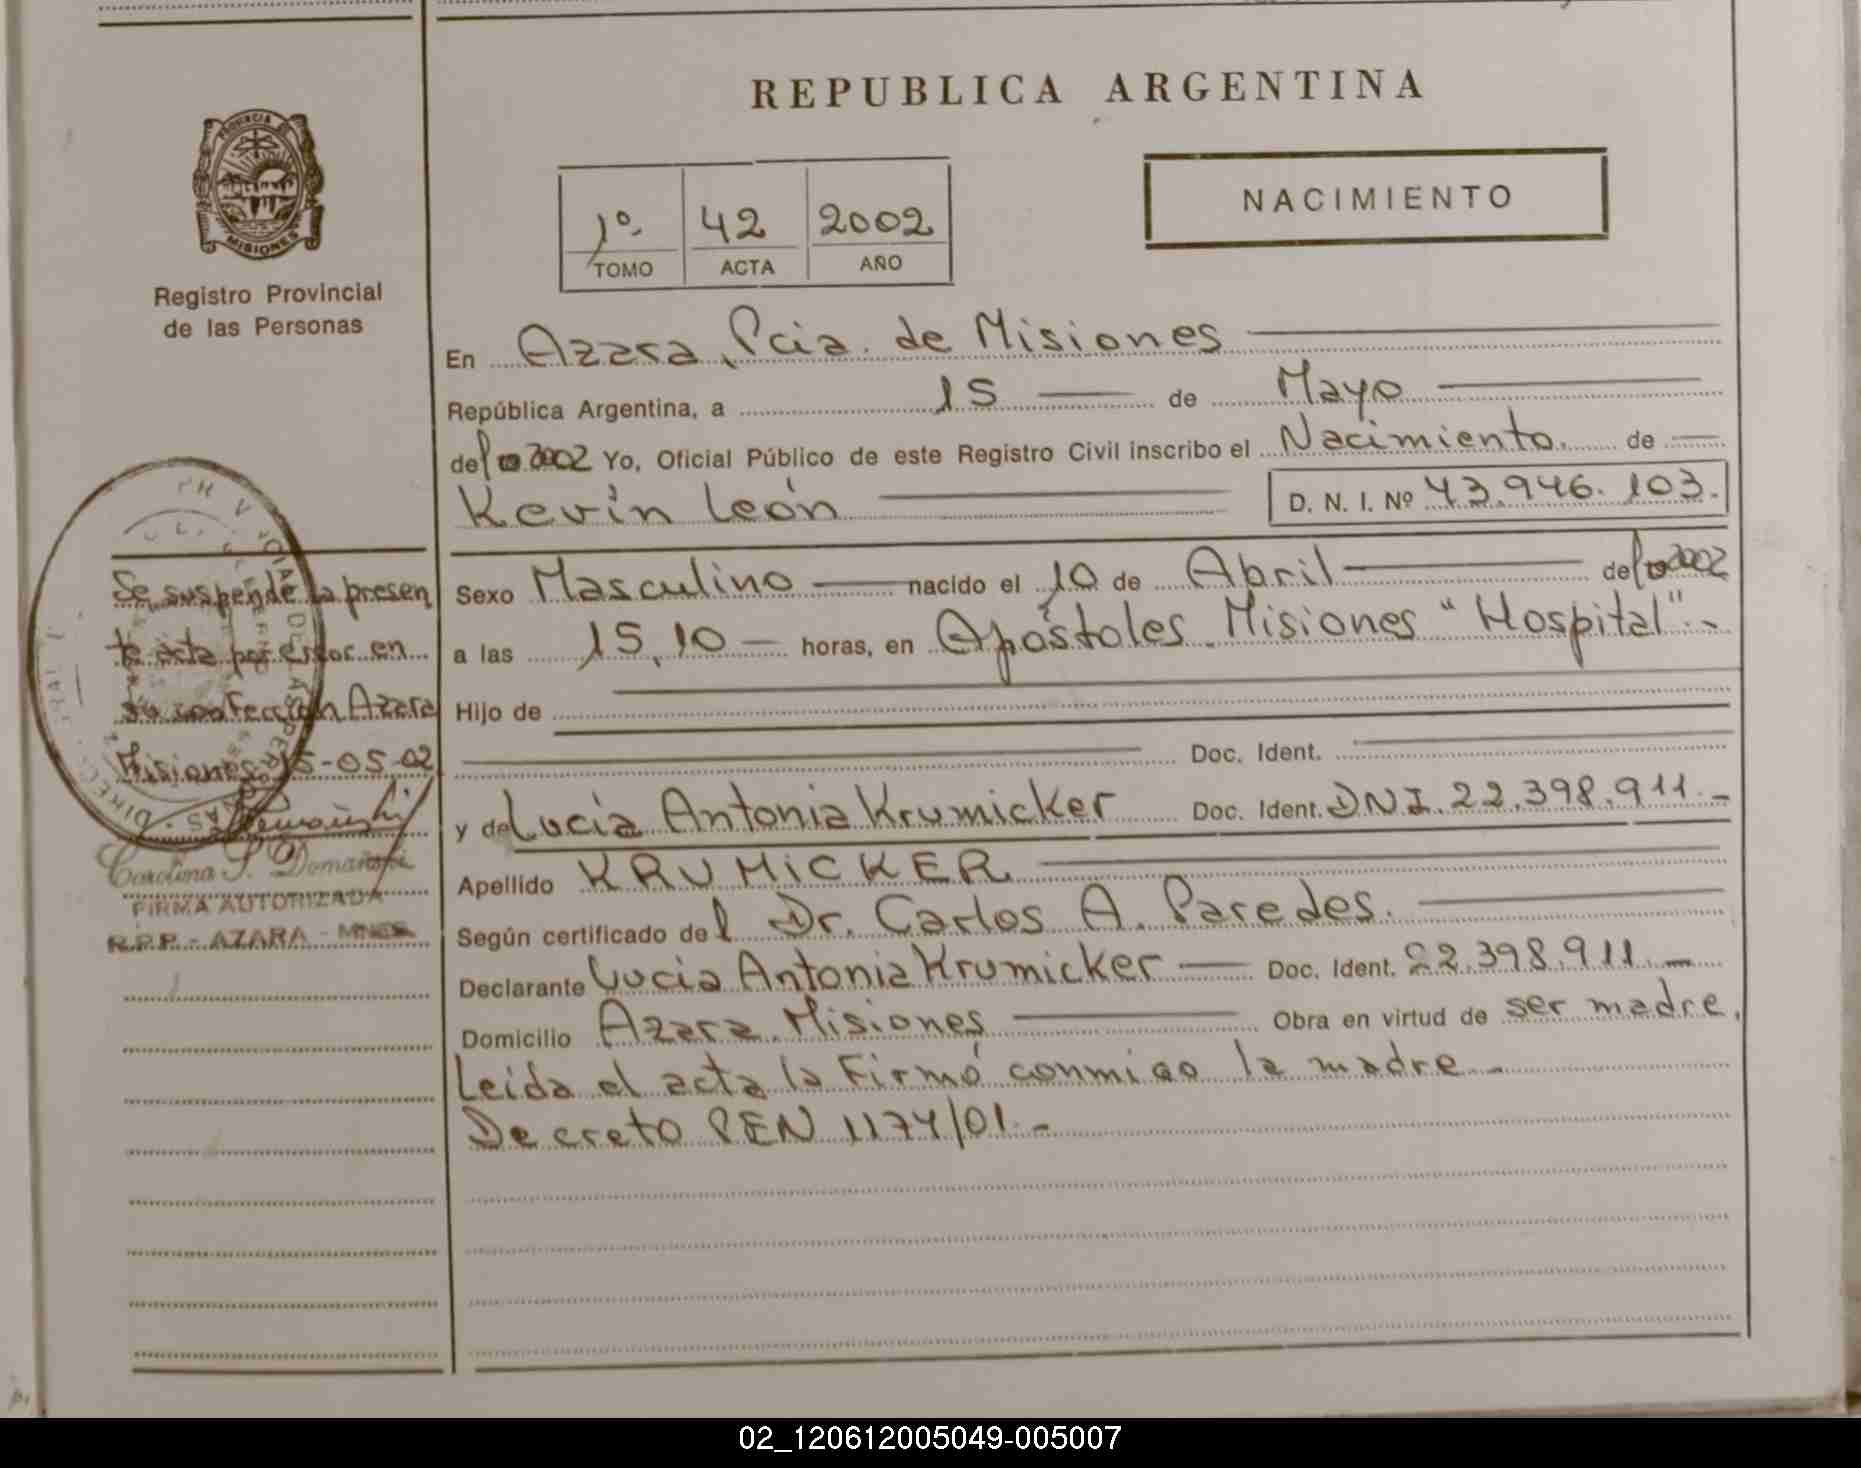 REPUBLICA ARGENTINA
PROVINCIA DE
MISIONES
Registro Provincial
de las Personas
1º 42 2002
TOMO ACTA AÑO
NACIMIENTO
En Azara, Pcia. de Misiones
República Argentina, a 15 de Mayo
del 2002 Yo, Oficial Público de este Registro Civil inscribo el Nacimiento. de
Kevin León D. N. I. Nº 43.946.103.
Sexo Masculino nacido el 10 de Abril del 2002
a las 15,10 horas, en Apóstoles Misiones "Hospital".-
Hijo de
Doc. Ident.
y de Lucia Antonia Krumicker Doc. Ident. DNI. 22.398.911.-
Apellido KRUMICKER
Según certificado del Dr. Carlos A. Paredes.
Declarante Lucia Antonia Krumicker Doc. Ident. 22.398.911.-
Domicilio Azara. Misiones Obra en virtud de ser madre.
Leida el acta la Firmó conmigo la madre.-
Decreto PEN 1174/01.-
Se suspende la presen
te acta por error en
su confección Azara
Misiones 15-05-02
Carolina S. Domański
FIRMA AUTORIZADA
R.P.P. - AZARA - MNES
02_120612005049-005007